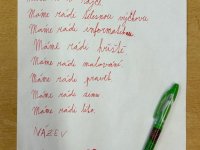 Máme rádi tělesnou výchovu
Máme rádi informatiku
Máme rádi hřiště
Máme rádi malování
Máme rádi
Máme rádi zimu
Máme rádi léto.
NÁZEV